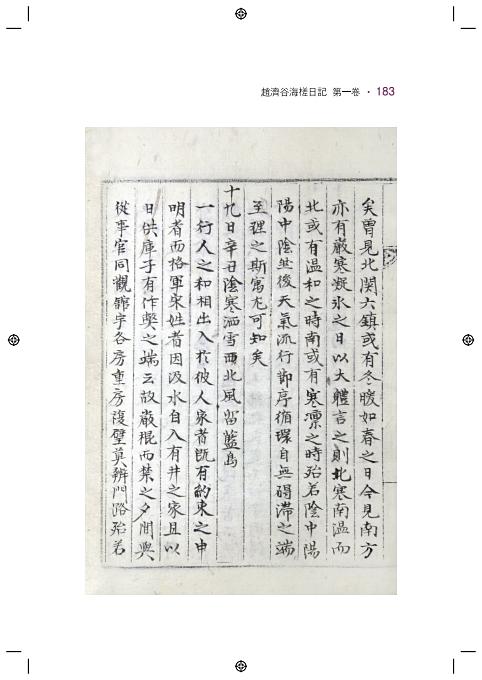 趙濟谷海槎日記 第一卷 · 183
矣曾見北関六鎮或有冬暖如春之日今見南方
亦有嚴寒凝氷之日以大體言之則北寒南温而
北或有温和之時南或有寒凛之時殆若陰中陽
陽中陰竝後天氣流行節序循環自無碍滞之端
至理之斯寓尤可知矣
十九日辛丑陰寒洒雪西北風留藍島
一行人之和相出入於彼人家者旣有約束之申
明者而格軍宋姓者因汲水自入有井之家且以
日供庫子有作獘之端云故嚴棍而禁之夕間與
從事官同觀舘宇各房重房複壁莫辨門路殆若